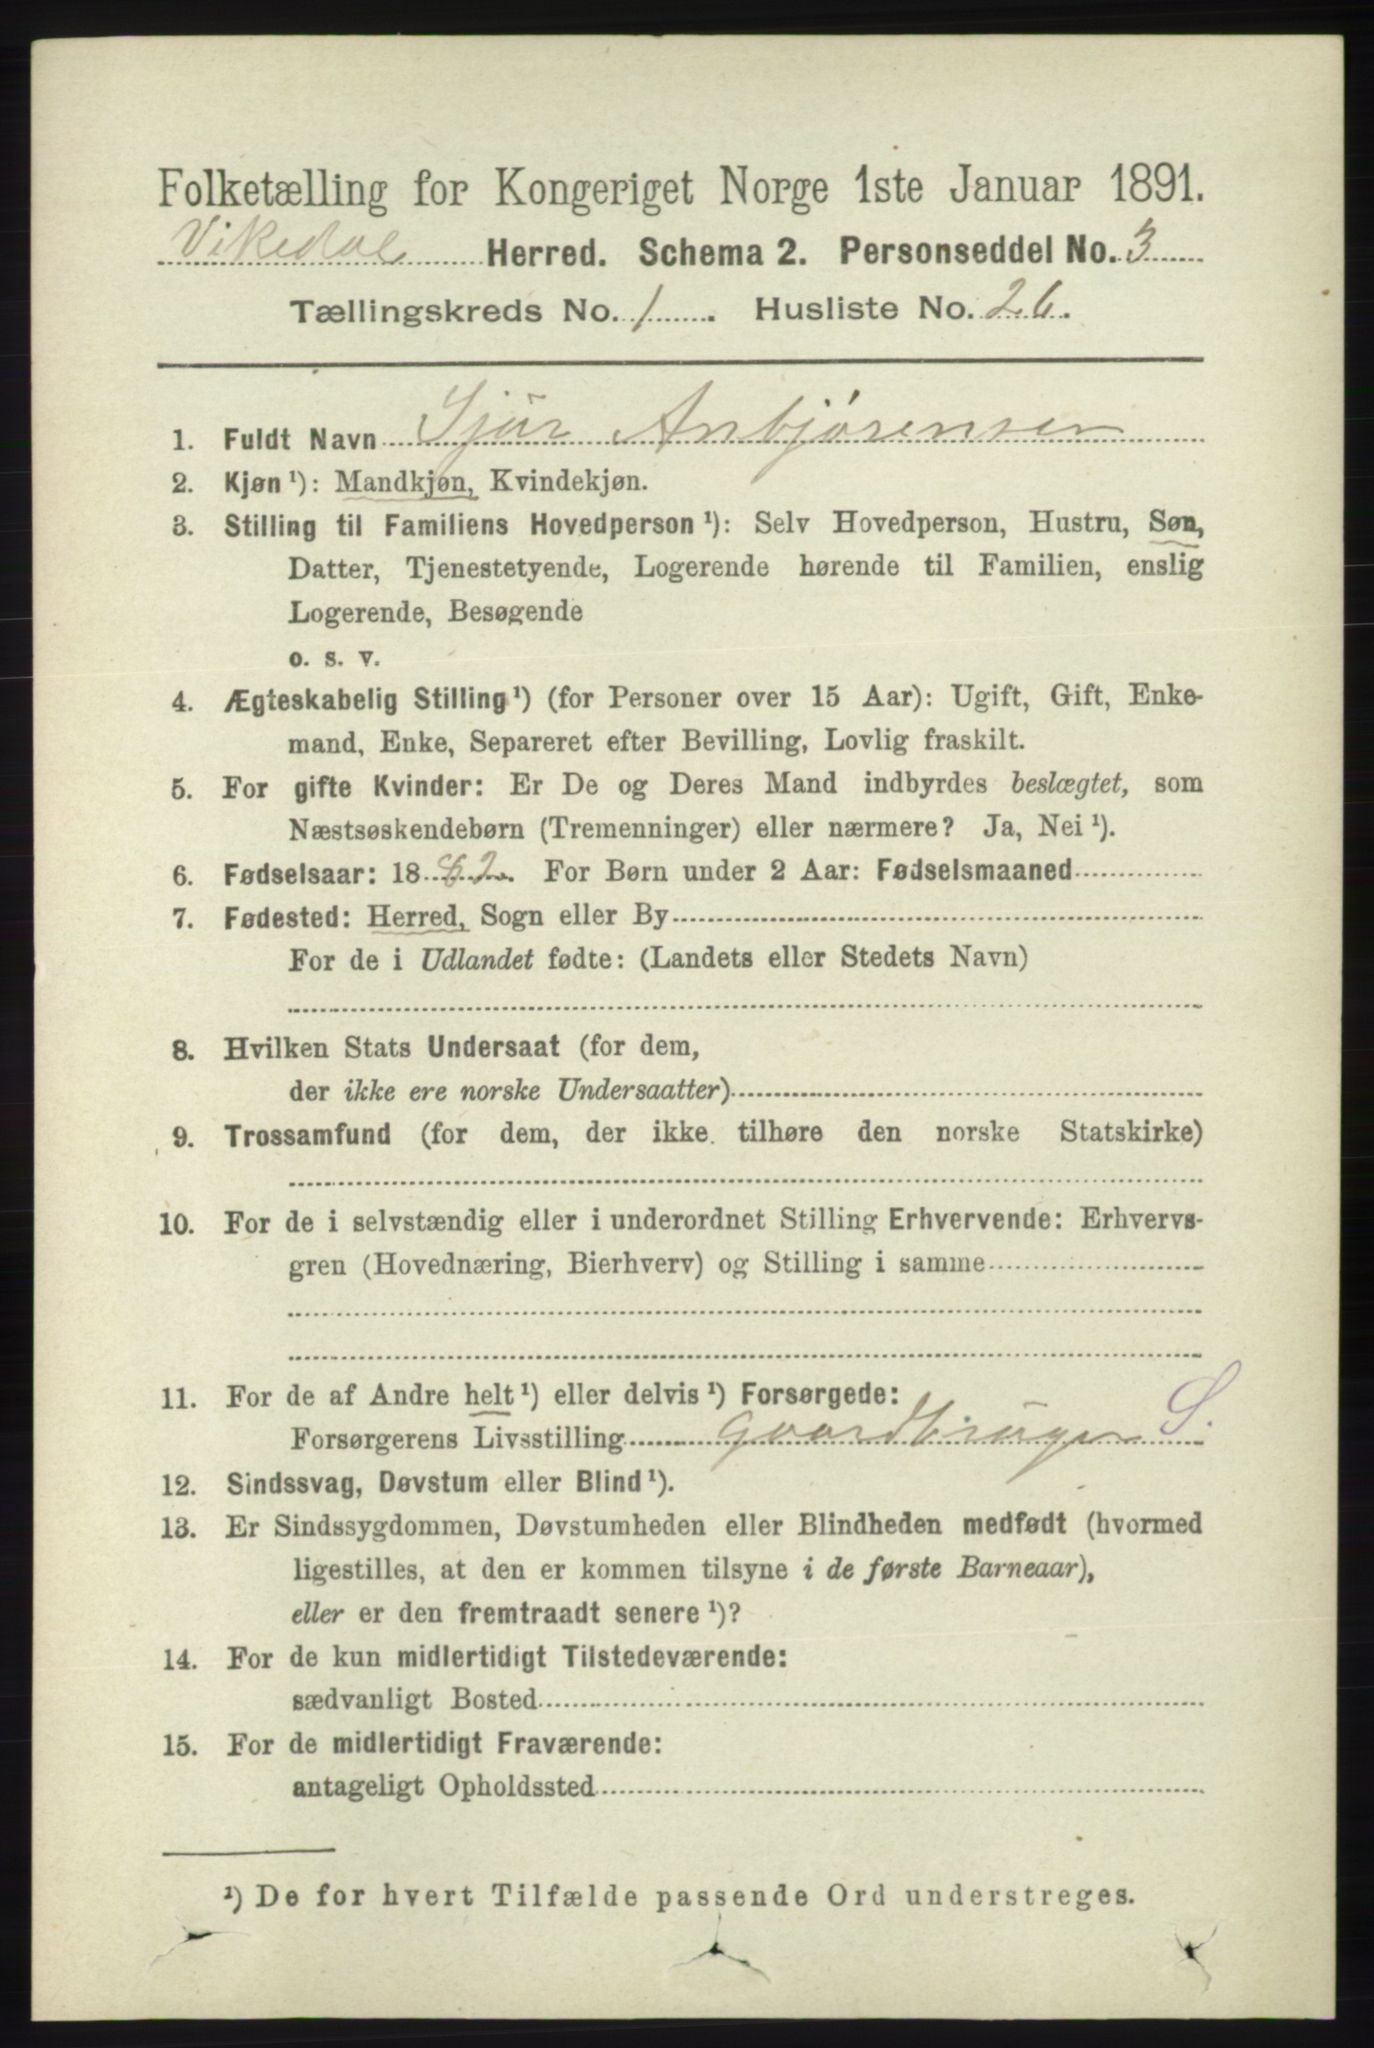 Folketælling for Kongeriget Norge 1ste Januar 1891.
Vikedal Herred. Schema 2. Personseddel No. 3
Tællingskreds No. 1. Husliste No. 26.
1. Fuldt Navn Sjur Anbjørensen
2. Kjøn ¹): Mandkjøn, Kvindekjøn.
3. Stilling til Familiens Hovedperson ¹): Selv Hovedperson, Hustru, Søn,
Datter, Tjenestetyende, Logerende hørende til Familien, enslig
Logerende, Besøgende
o. s. v.
4. Ægteskabelig Stilling ¹) (for Personer over 15 Aar): Ugift, Gift, Enke-
mand, Enke, Separeret efter Bevilling, Lovlig fraskilt.
5. For gifte Kvinder: Er De og Deres Mand indbyrdes beslægtet, som
Næstsøskendebørn (Tremenninger) eller nærmere? Ja, Nei ¹).
6. Fødselsaar: 1882. For Børn under 2 Aar: Fødselsmaaned
7. Fødested: Herred, Sogn eller By
For de i Udlandet fødte: (Landets eller Stedets Navn)
8. Hvilken Stats Undersaat (for dem,
der ikke ere norske Undersaatter)
9. Trossamfund (for dem, der ikke tilhøre den norske Statskirke)
10. For de i selvstændig eller i underordnet Stilling Erhvervende: Erhvervs-
gren (Hovednæring, Bierhverv) og Stilling i samme
11. For de af Andre helt ¹) eller delvis ¹) Forsørgede:
Forsørgerens Livsstilling gaardbruger S.
12. Sindssvag, Døvstum eller Blind ¹).
13. Er Sindssygdommen, Døvstumheden eller Blindheden medfødt (hvormed
ligestilles, at den er kommen tilsyne i de første Barneaar),
eller er den fremtraadt senere ¹)?
14. For de kun midlertidigt Tilstedeværende:
sædvanligt Bosted
15. For de midlertidigt Fraværende:
antageligt Opholdssted
¹) De for hvert Tilfælde passende Ord understreges.